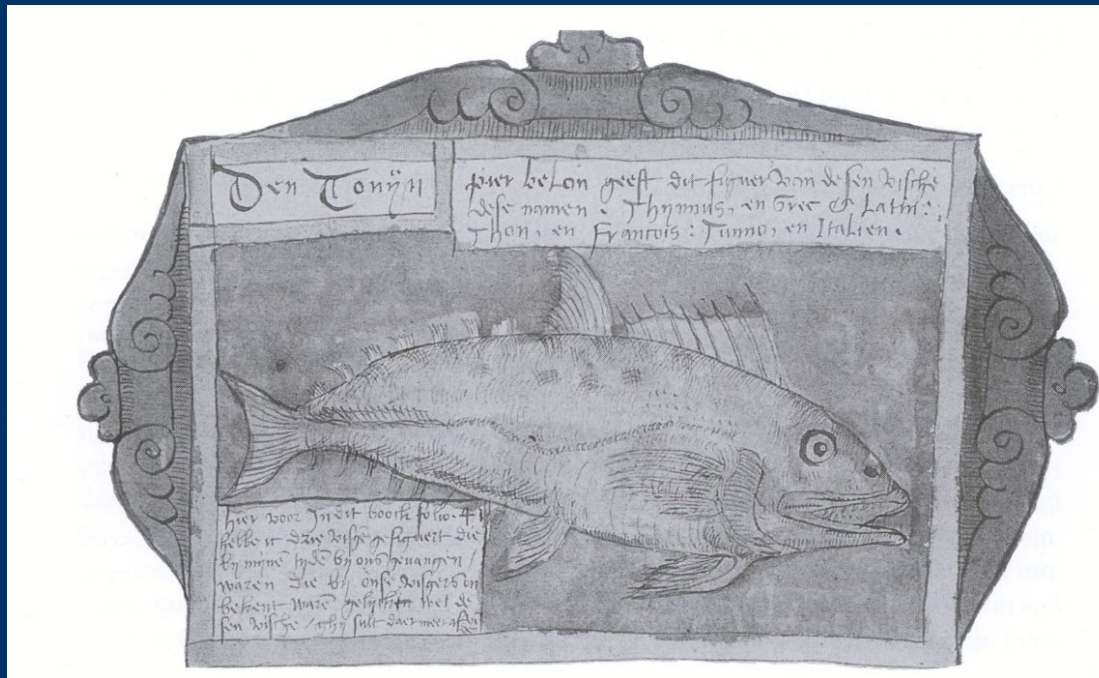 Den Tonÿn
pier belon geeft dit figuer van desen vische
dese namen. Thijnnus, en Grec & Latin:
Thon, en Francois: Tunno, en Italien.
hier voor In dit boock folio 41
hebbe ic drie vissche gefiguert die
bij mijnē tijdē bij ons gevangen /
waren die bij onse visschers on
bekent warē gelijcken wel de
sen vische / ghij sult daer meer af